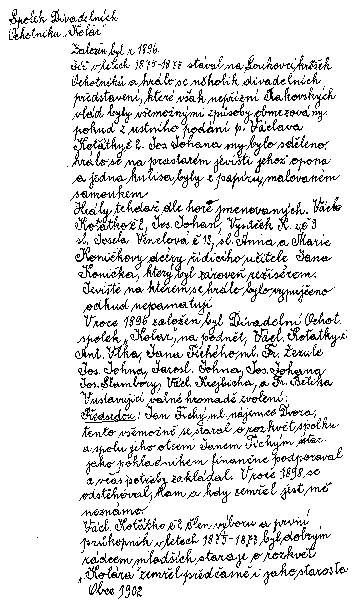 Spolek Divadelních
Ochotníků "Kolár"
Založen byl r. 1896.
Již v letech 1875-1877 stával na Loukovci kroužek
Ochotníků a hrálo se několik divadelních
představení, které však nepřízní Rakouských
vlád byly všemožnými způsoby obmezovány,
pokud z ustního podání p. Václava
Koťátka č. 2. Jos. Johana my bylo sděleno,
hrálo se na prastarém jevišti jehož opona
a jedna kulisa byly z papíru, malovaném
samoukem
Hrály tehdáž dle hoře jmenovaných. Václ.
Koťátko č 2, Jos. Johan, K. z č 3
sl. Josefa č 13, sl. Anna a Marie
Koničkovy dcéry řídícího učitele Jana
Konička, který byl zároveň režisérem.
Jeviště na kterém se hrálo bylo vypůjčeno
odkud nepamatují
V roce 1896 založen byl Divadelní Ochot.
spolek "Kolár", na podnět, Václ. Koťátky č.
Ant. Vlka, Jana Tichého ml. Fr.
Jos. Johna, Jarosl. Johna, Jos. Johana
Jos. Václ. Krejbicha, a Fr.
Ustavující valné hromadě zvolení:
Předseda: Jan Tichý ml. nájemce Dvora,
tento všemožně se staral o rozkvět spolku
a spolu jeho otcem Janem Tichým star.
jako pokladníkem finančně podporoval
a včas potřeby zakládal. V roce 1898 se
odstěhoval, kam a kdy zemřel jest mě
neznámo.
Václ. Koťátko č 2 člen výboru a první
průkopník v letech 1875-1877, byl dobrým
rádcem mladších staraje o rozkvět
"Kolára" zemřel předčasně i jako starosta
Obce 1902